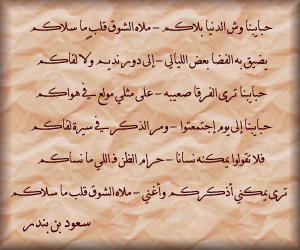 حبايبنا وش الدنيا بلاكم - ملاه الشوق قلبٍ ما سلاكم
يضيق به الفضا بعض الليالي - إلى دور نديم ولا لقاكم
حبايبنا ترى الفرقا صعيبه - على مثلي مولع في هواكم
حبايبنا إلى يوم إجتمعتوا - ومر الذكر في سيرة لقاكم
فلا تقولوا يمكنه نسانا - حرام الظن فاللي ما نساكم
ترى يمكني أذكركم وأغني - ملاه الشوق قلب ما سلاكم
سعود بن بندر